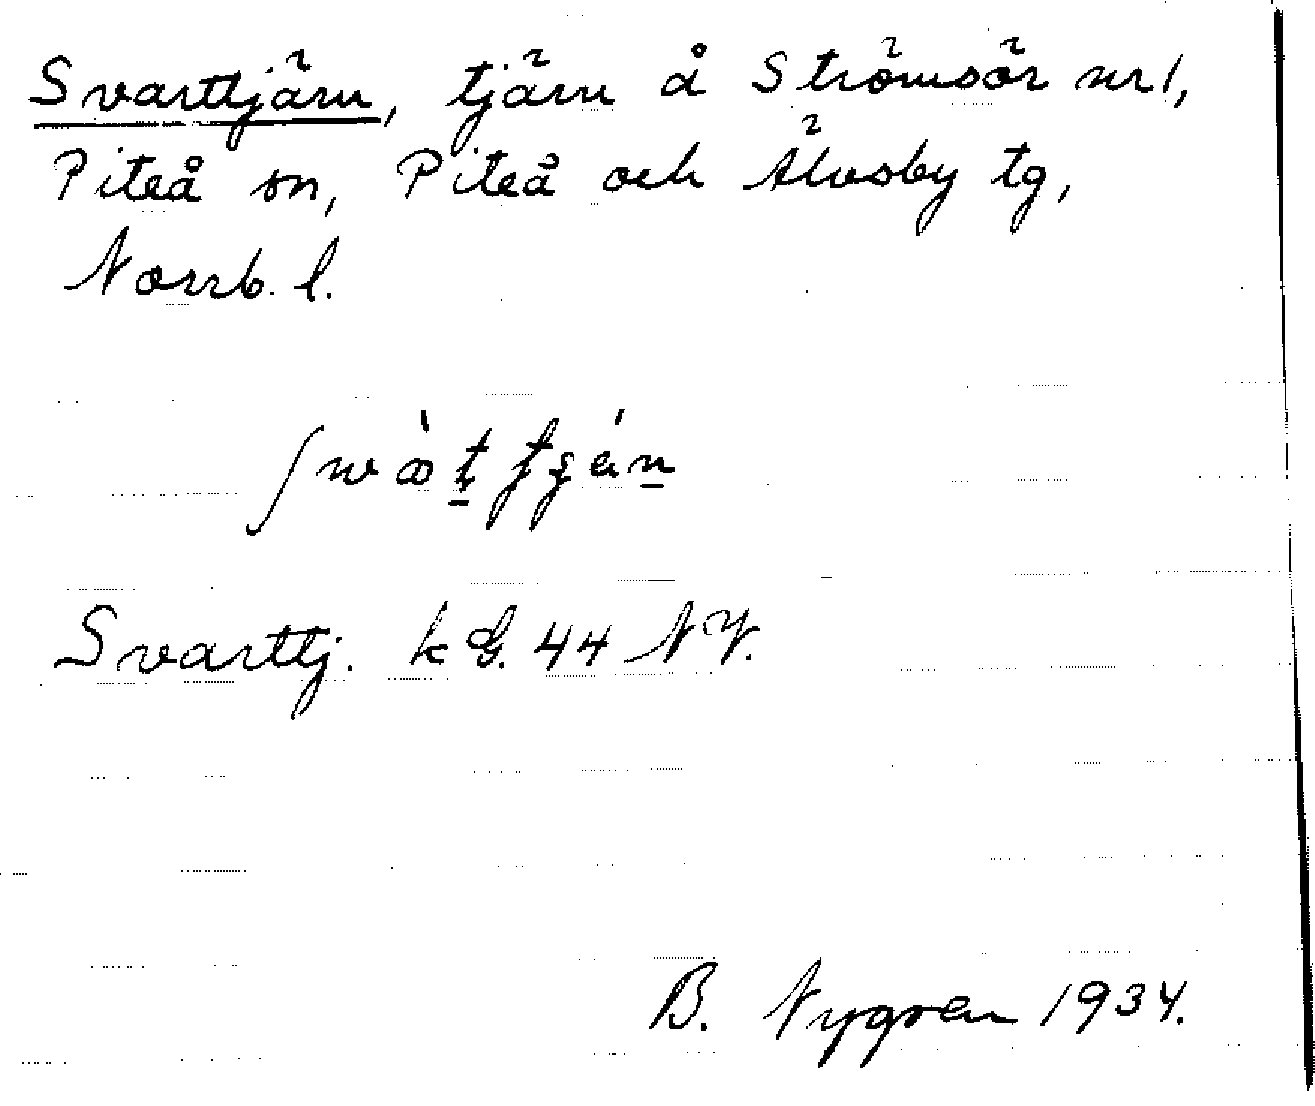 Svarttjärn, tjärn å Strömsör nr 1,
Piteå sn, Piteå och Älvsby tg,
Norrb. l.
Svarttj. k G. 44 NV.
B. Nygren 1934.